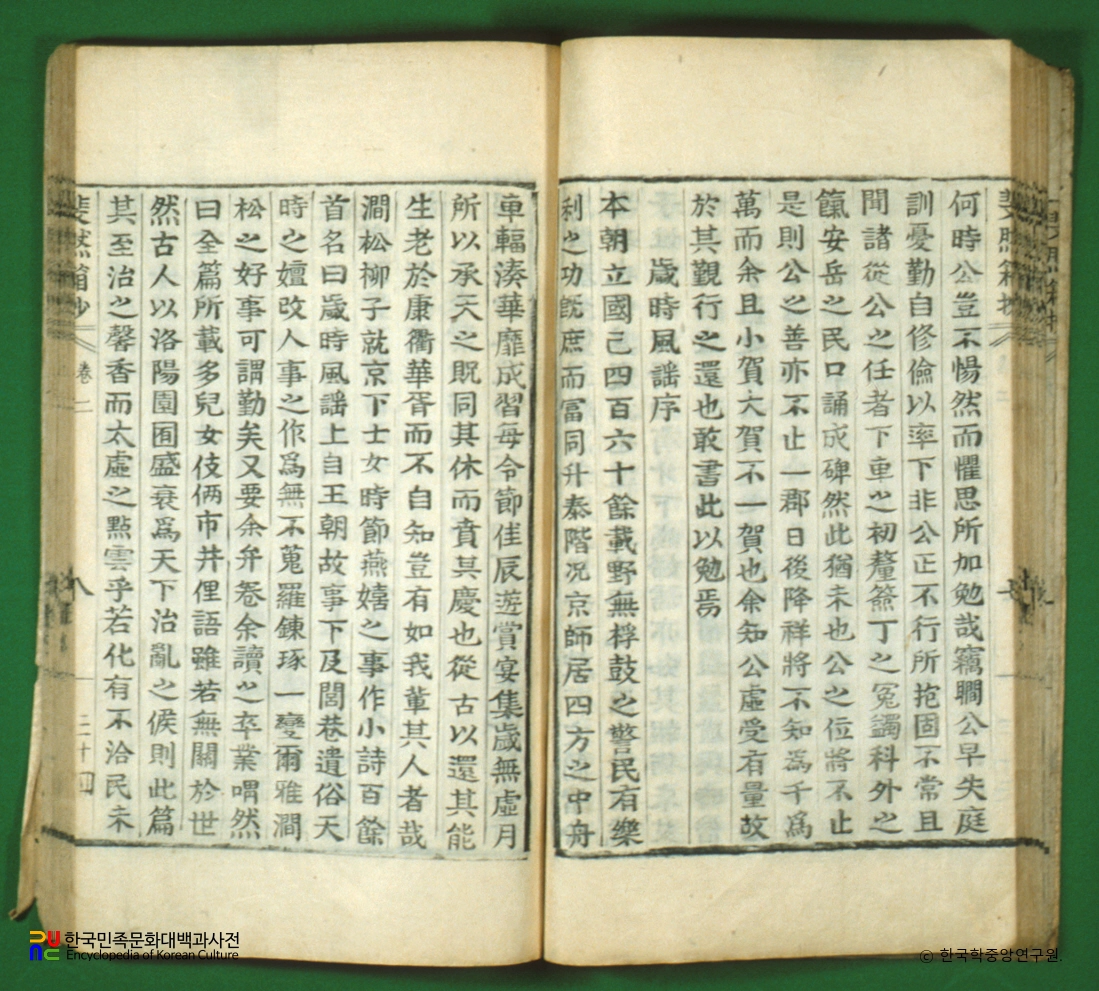 何時公豈不惕然而懼思所加勉哉竊瞷公早失庭
訓憂勤自修儉以率下非公正不行所抱固不常且
聞諸從公之任者下車之初釐簽丁之冤蠲科外之
餼安岳之民口誦成碑然此猶未也公之位將不止
是則公之善亦不止一郡日後降祥將不知為千為
萬而余且小賀大賀不一賀也余知公虛受有量故
於其覲行之還也敢書此以勉焉
歲時風謠序
本朝立國已四百六十餘載野無桴鼓之警民有樂
利之功旣庶而富同升泰階况京師居四方之中舟
車輻湊華靡成習每令節佳辰遊賞宴集歲無虛月
所以承天之貺同其休而賁其慶也從古以還其能
生老於康衢華胥而不自知豈有如我輩其人者哉
澗松柳子就京下士女時節燕嬉之事作小詩百餘
首名曰歲時風謠上自王朝故事下及閭巷遺俗天
時之嬗改人事之作爲無不蒐羅鍊琢一變爾雅澗
松之好事可謂勤矣又要余弁卷余讀之卒業喟然
曰全篇所載多兒女伎倆市井俚語雖若無關於世
然古人以洛陽園囿盛衰爲天下治亂之候則此篇
其至治之馨香而太虛之點雲乎若化有不洽民未
斐然箱抄 卷二 二十四
한국민족문화대백과사전
Encyclopedia of Korean Culture
© 한국학중앙연구원.